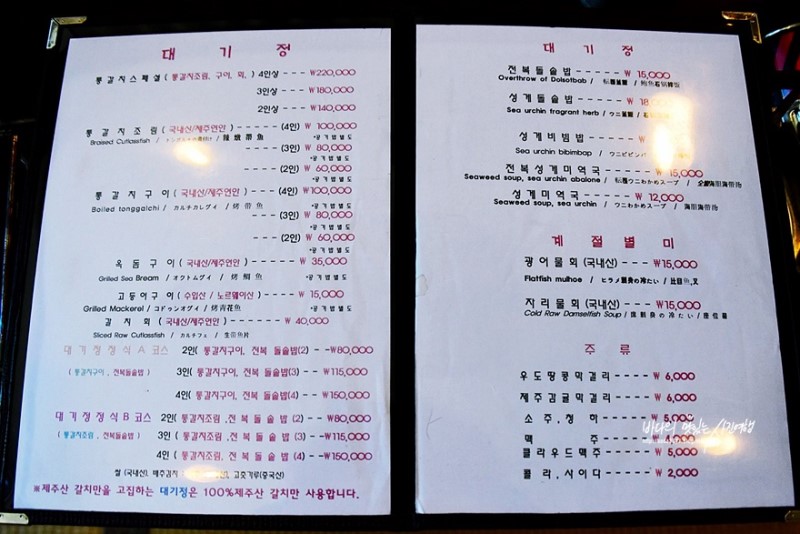 대 기 정
통갈치스페셜 ( 통갈치조림, 구이, 회, ) 4인상 - - - ₩220,000
3인상 - - - ₩180,000
2인상 - - - ₩140,000
통 갈 치 조 림 ( 국내산/제주연안 ) - - - - - - (4인) ₩ 100,000
Braised Cutlassfish /
*공 기 밥 별 도
- - - - (3인) ₩ 80,000
*공 기 밥 별 도
- - - - (2인) ₩ 60,000
*공 기 밥 별 도
통 갈 치 구 이 ( 국내산/제주연안 ) - - - - (4인) ₩100,000
Boiled tonggalchi / カルチカレグイ / 烤 带 鱼
*공 기 밥 별 도
- - - - (3인) ₩ 80,000
*공 기 밥 별 도
- - - - (2인) ₩ 60,000
*공 기 밥 별 도
옥 돔 구 이 ( 국내산/제주연안 ) - - - - - - ₩ 35,000
Grilled Sea Bream / オクトムグイ / 烤 鲷 鱼
*공 기 밥 별 도
고등어구이 ( 수입산 / 노르웨이산 ) - - - - ₩ 15,000
Grilled Mackerel / コドゥンオグイ / 烤青花鱼
*공 기 밥 별 도
갈 치 회 ( 국내산/제주연안 ) - - - - - - ₩ 40,000
Sliced Raw Cutlassfish / カルチフェ / 生带鱼片
대 기 정정식 A 코스 2인( 통갈치구이, 전복 돌솥밥(2) - - ₩80,000
( 통갈치구이 , 전복돌솥밥 ) 3인( 통갈치구이, 전복 돌솥밥(3) - - - ₩115,000
4인( 통갈치구이, 전복 돌솥밥(4) - - - ₩150,000
대 기 정정식 B 코스 2인( 통갈치조림 , 전복 돌솥밥 (2) - - ₩80,000
( 통갈치조림 , 전복돌솥밥 ) 3인 ( 통갈치조림 , 전복 돌솥밥 (3) - - ₩115,000
4 인 ( 통갈치조림 , 전복 돌솥밥 (4) - - ₩150,000
쌀 (국내산), 배추김치 고춧가루(중국산)
※제주산 갈치만을 고집하는 대기정은 100%제주산 갈치만 사용합니다.
대 기 정
전복돌솥밥 - - - - - ₩ 15,000
Overthrow of Dolsotbab /
성게돌솥밥 - - - - ₩ 18,000
Sea urchin fragrant herb /
성게비빔밥 - - - - ₩
Sea urchin bibimbap /
전복성게미역국 - - - - ₩ 15,000
Seaweed soup, sea urchin abalone /
성게미역국 - - - - ₩ 12,000
Seaweed soup, sea urchin / ウニわかめスープ /
계 절 별 미
광어물회 (국내산) - - - - ₩15,000
Flatfish mulhoe /
자리물회 (국내산) - - - - ₩15,000
Cold Raw Damselfish Soup /
주 류
우도땅콩막걸리 - - - - - ₩ 6,000
제주감귤막걸리 - - - - - ₩ 6,000
소 주 , 청 하 - - - - - - - ₩ 5,000
맥 주 - - - - - - - ₩ 4,000
클라우드맥주 - - - - - - ₩ 5,000
콜 라 , 사 이 다 - - - - - ₩ 2,000